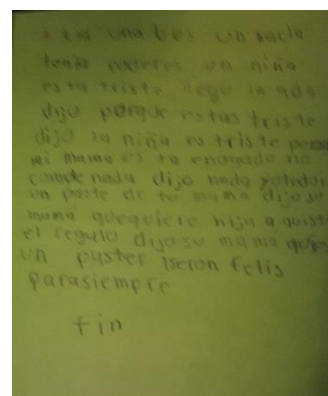 Tia una bes un hacla
tenia poderes un niña
esta triste llego la ada
dijo porque estas triste
dijo la niña es triste porce
mi mama es ta enogado no
compe nada dijo hada yotedor
un paste de tu mama dijo su
mama quequiere hija a quist
el regulo dijo su mama
un pyster iseron felis
parasiempre
fin